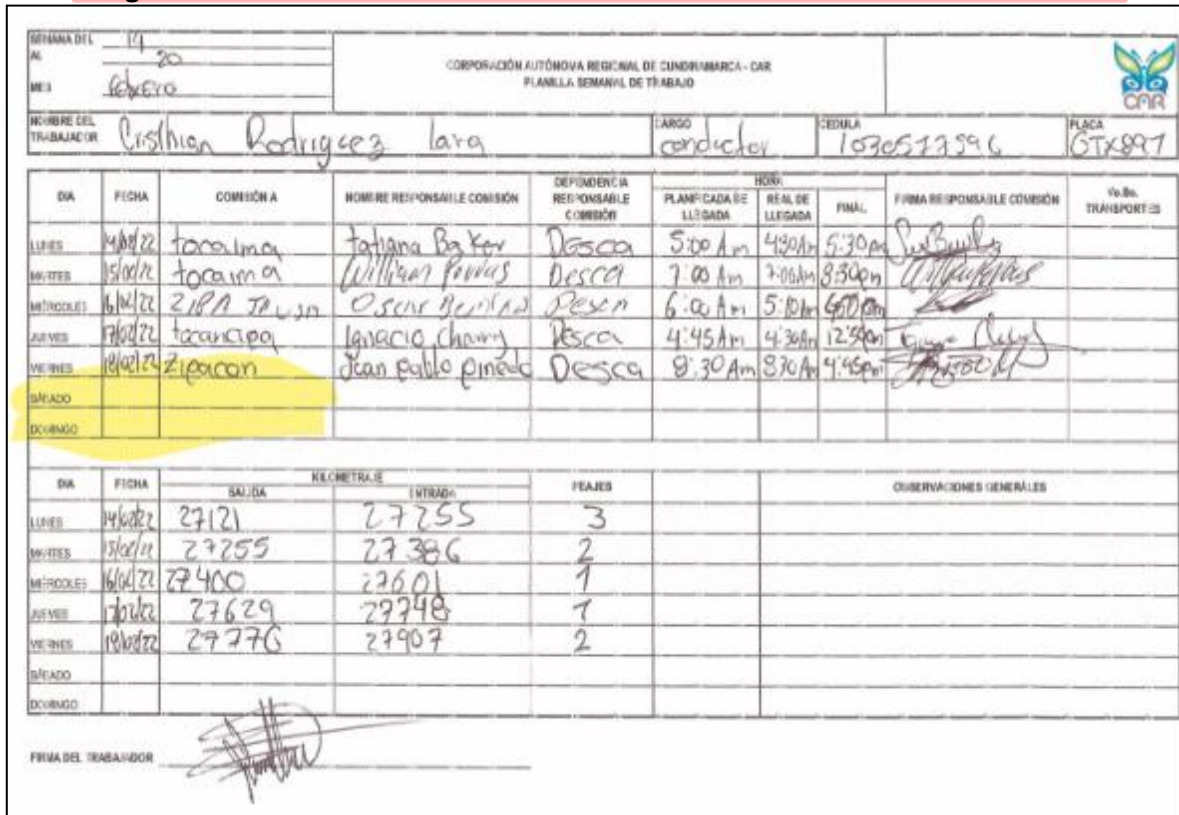 SEMANA DEL 14
AL 20
MES febrero
CORPORACIÓN AUTÓNOMA REGIONAL DE CUNDINAMARCA - CAR
PLANILLA SEMANAL DE TRABAJO
CAR
NOMBRE DEL TRABAJADOR Cristhian Rodriguez lara CARGO conductor CEDULA 1030577596 PLACA GTX897
DIA FECHA COMISIÓN A NOMBRE RESPONSABLE COMISIÓN DEPENDENCIA RESPONSABLE COMISIÓN HORA PLANIFICADA DE LLEGADA REAL DE LLEGADA FINAL FIRMA RESPONSABLE COMISIÓN Vo.Bo. TRANSPORTES
LUNES 14/02/22 tocaima tatiana Baker Desca 5:00 Am 4:30Am 5:30pm
MARTES 15/02/22 tocaima William Desca 7:00 Am 7:00Am 8:30pm
MIÉRCOLES 16/02/22 ZIPA Oscar 6:00 Am 5:10Am
JUEVES 17/02/22 tocancipa Ignacio Chavry Desca 4:45Am 4:30Am 12:50pm
VIERNES 18/02/22 Zipacon Juan pablo pinedo Desca 8:30 Am 830Am 4:45pm
SÁBADO
DOMINGO
DIA FECHA KILOMETRAJE SALIDA ENTRADA PEAJES OBSERVACIONES GENERALES
LUNES 14/02/22 27121 27255 3
MARTES 15/02/22 27255 27386 2
MIÉRCOLES 16/02/22 27400 27601 1
JUEVES 17/02/22 27629 27748 1
VIERNES 18/02/22 27776 27907 2
SÁBADO
DOMINGO
FIRMA DEL TRABAJADOR